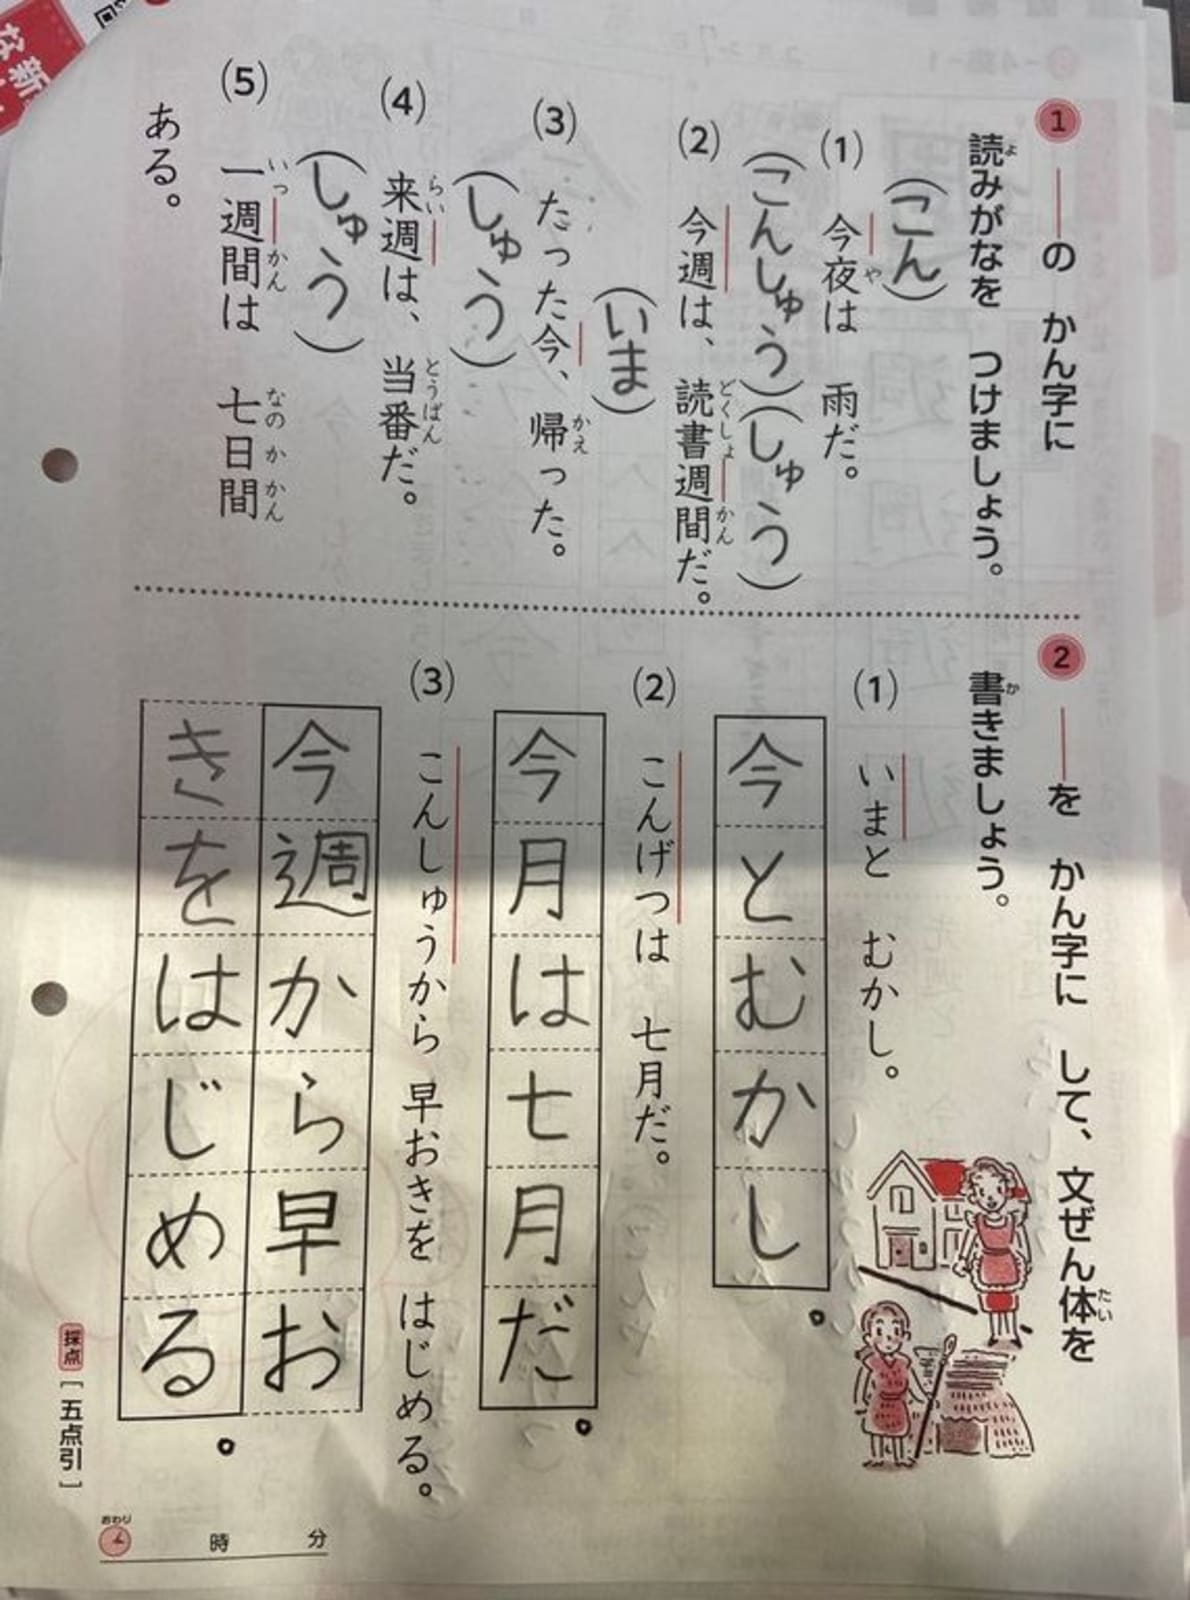 1 ――の かん字に
読みがなを つけましょう。
よ
(こん)
(1) 今夜は 雨だ。
や
(こんしゅう)(しゅう)
(2) 今週は、読書週間だ。
どくしょ かん
(いま)
(3) たった今、帰った。
かえ
(しゅう)
(4) 来週は、当番だ。
らい とうばん
(しゅう)
(5) 一週間は 七日間
いっ かん なの か かん
ある。
2 ――を かん字に して、文ぜん体を
たい
書きましょう。
か
(1) いまと むかし。
今とむかし。
(2) こんげつは 七月だ。
今月は七月だ。
(3) こんしゅうから 早おきを はじめる。
今週から早お
きをはじめる。
採点[五点引]
おわり 時 分